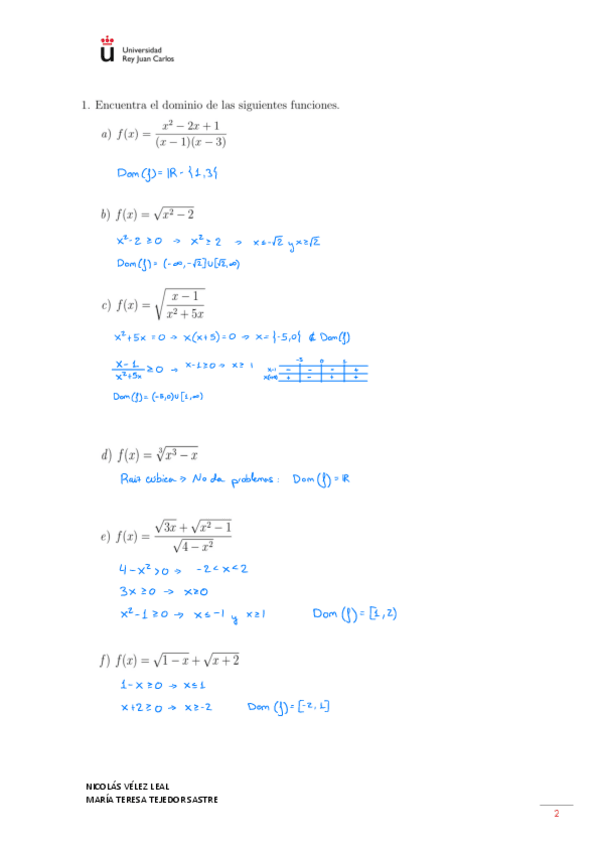 Universidad
Rey Juan Carlos
1. Encuentra el dominio de las siguientes funciones.
a) f(x) = (x² − 2x + 1)/((x − 1)(x − 3))
Dom(f) = ℝ - {1,3}
b) f(x) = √(x² − 2)
x²-2 ≥ 0 → x² ≥ 2 → x ≤ -√2 y x ≥ √2
Dom(f) = (-∞, -√2] ∪ [√2, ∞)
c) f(x) = √((x − 1)/(x² + 5x))
x²+5x = 0 → x(x+5) = 0 → x = {-5,0} ∉ Dom(f)
(x-1)/(x²+5x) ≥ 0 → x-1 ≥ 0 → x ≥ 1
-5 0 1
x-1 - - - +
x(x+5) + - + +
Dom(f) = (-5,0) ∪ [1,∞)
d) f(x) = ∛(x³ − x)
Raiz cubica → No da problemas: Dom(f) = ℝ
e) f(x) = (√(3x) + √(x² − 1))/√(4 − x²)
4-x² > 0 → -2 < x < 2
3x ≥ 0 → x ≥ 0
x²-1 ≥ 0 → x ≤ -1 y x ≥ 1 Dom(f) = [1,2)
f) f(x) = √(1 − x) + √(x + 2)
1-x ≥ 0 → x ≤ 1
x+2 ≥ 0 → x ≥ -2 Dom(f) = [-2,1]
NICOLÁS VÉLEZ LEAL
MARÍA TERESA TEJEDOR SASTRE
2